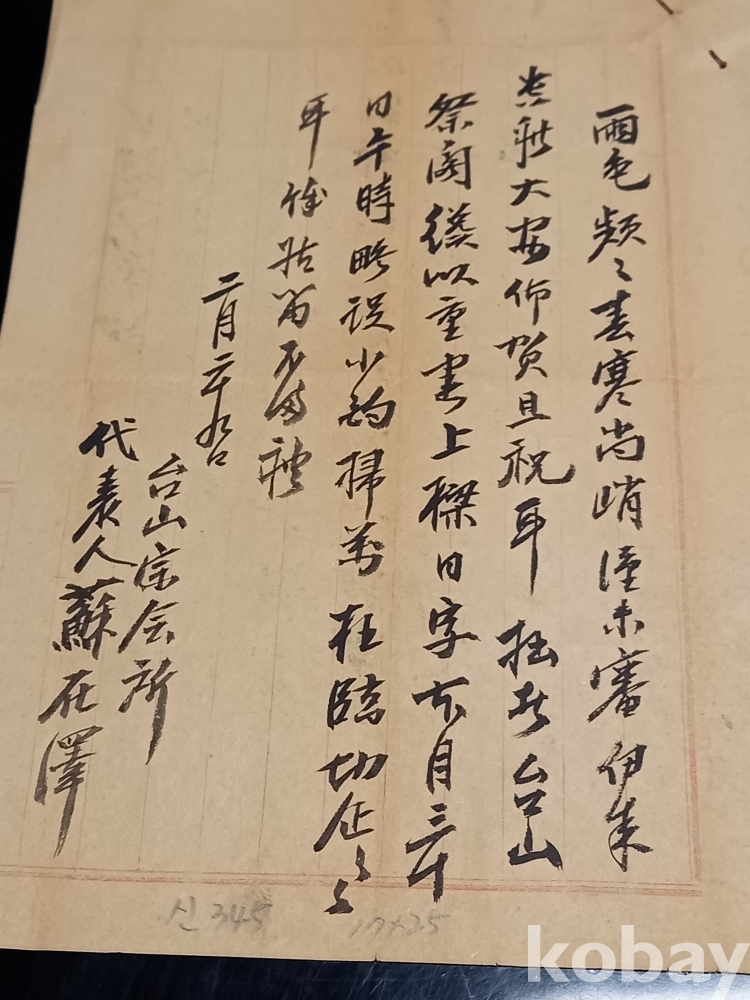 雨色頻々春寒尚峭謹未審伊來
大安仰賀且祝耳 拙者台山
祭閣後以重建上樑日字 月三十
日午時略設小酌掃萬 枉臨切企々々
耳 餘姑留不備禮
二月二十九日
台山宗会所
代表人蘇在澤
신 345
17×25
kobay